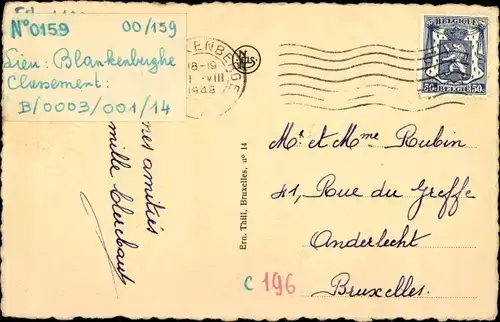 N°0159 00/159
Lieu: Blankenberghe
Classement:
B/0003/001/14
KENBERGE
18-19
VIII
1948
NELS
BELGIQUE
50 BELGIË 50
mes amitiés
mille Clerebaut
Ern. Thill, Bruxelles, n° 14
Mr et Mme Rubin
41, Rue du Greffe
Anderlecht
Bruxelles
C 196